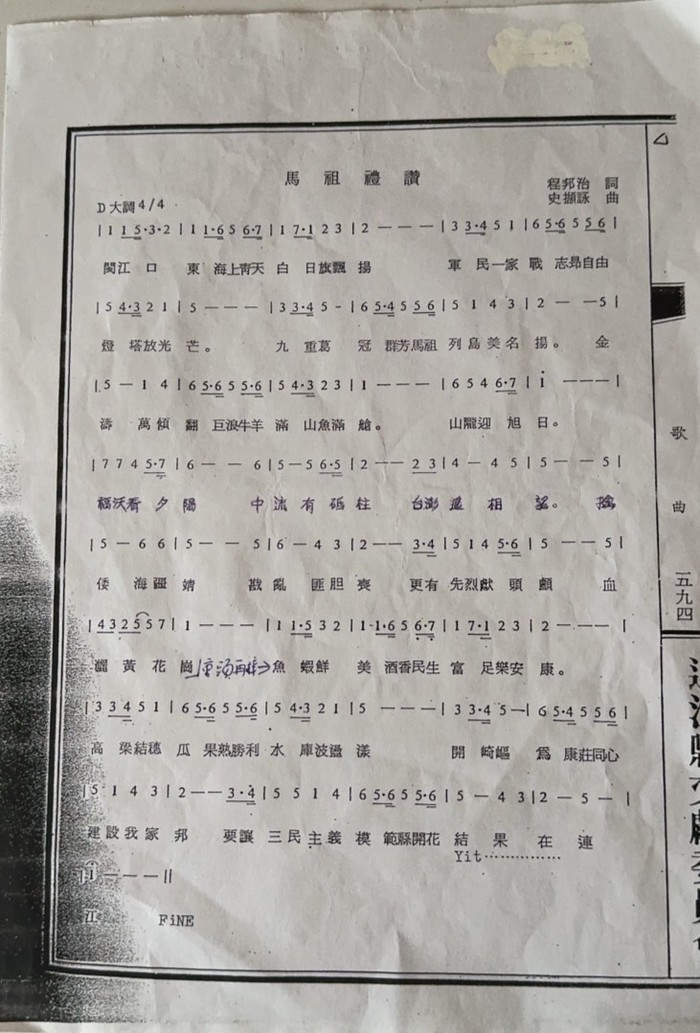 馬祖禮讚
程邦治 詞
D大調4/4
史擷詠 曲
|1 1 5·3·2|1 1·6 5 6·7|1 7·1 2 3|2 — — —|3 3·4 5 1|6 5·6 5 5 6|
閩江口 東 海上靑天 白 日旗飄 揚 軍 民一家 戰 志昻自由
|5 4·3 2 1|5 — — —|3 3·4 5 -|6 5·4 5 5 6|5 1 4 3|2 — —5|
燈 塔放光 芒。 九 重葛 冠 群芳馬祖 列島美名 揚。 金
|5 — 1 4|6 5·6 5 5·6|5 4·3 2 3|1 — — —|6 5 4 6·7|i — — —|
濤 萬傾 翻 巨浪牛羊 滿 山魚滿 艙。 山隴迎 旭 日。
|7 7 4 5·7|6 — — 6|5 — 5 6·5|2 — — 2 3|4 — 4 5|5 — — 5|
福沃看 夕 陽 中 流 有 砥 柱 台澎 遙 相 望。
|5 — 6 6|5 — — 5|6 — 4 3|2 — — 3·4|5 1 4 5·6|5 — — 5|
倭 海疆 靖 戡 亂 匪胆 喪 更有 先烈獻 頭 顱 血
|4 3 2 5 5 7|1 — — —|1 1·5 3 2|1·1·6 5 6·7|1 7·1 2 3|2 — — —|
灑 黃 花 崗 魚 蝦鮮 美 酒香民生 富 足樂安 康。
|3 3 4 5 1|6 5·6 5 5·6|5 4·3 2 1|5 — — —|3 3·4 5 —|6 5·4 5 5 6|
高 梁結穗 瓜 果熟勝利 水 庫波盪 漾 開 崎嶇 爲 康莊同心
|5 1 4 3|2 — — 3·4|5 5 1 4|6 5·6 5 5·6|5 — 4 3|2 — 5 —|
建設我家 邦 要讓 三民主義 模 範縣開花 結 果 在 連
Yit··············
|i — — —||
江 FiNE
歌曲
五九四